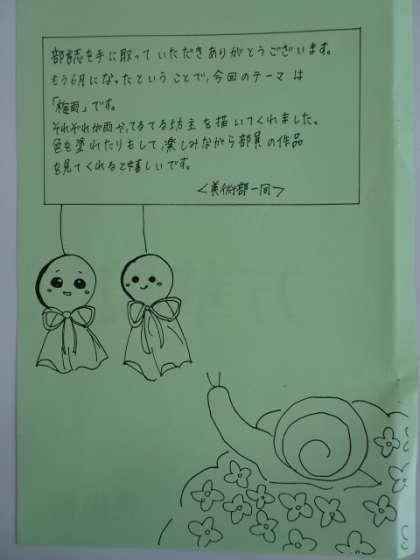 部誌を手に取っていただきありがとうございます。
もう6月になったということで、今回のテーマは
「梅雨」です。
それぞれが雨や、てるてる坊主を描いてくれました。
色を塗れたりもして、楽しみながら部員の作品
を見てくれると嬉しいです。
<美術部一同>